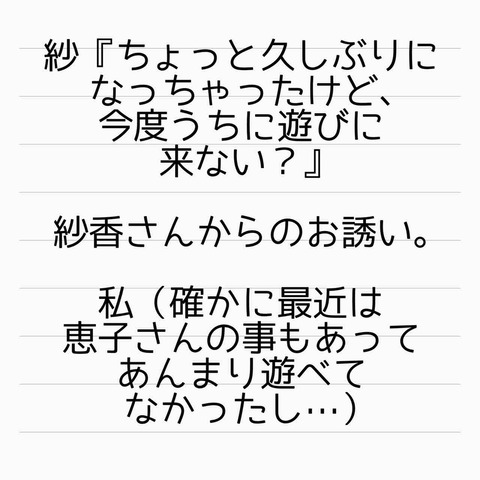 紗『ちょっと久しぶりに
なっちゃったけど、
今度うちに遊びに
来ない？』
紗香さんからのお誘い。
私（確かに最近は
恵子さんの事もあって
あんまり遊べて
なかったし…）